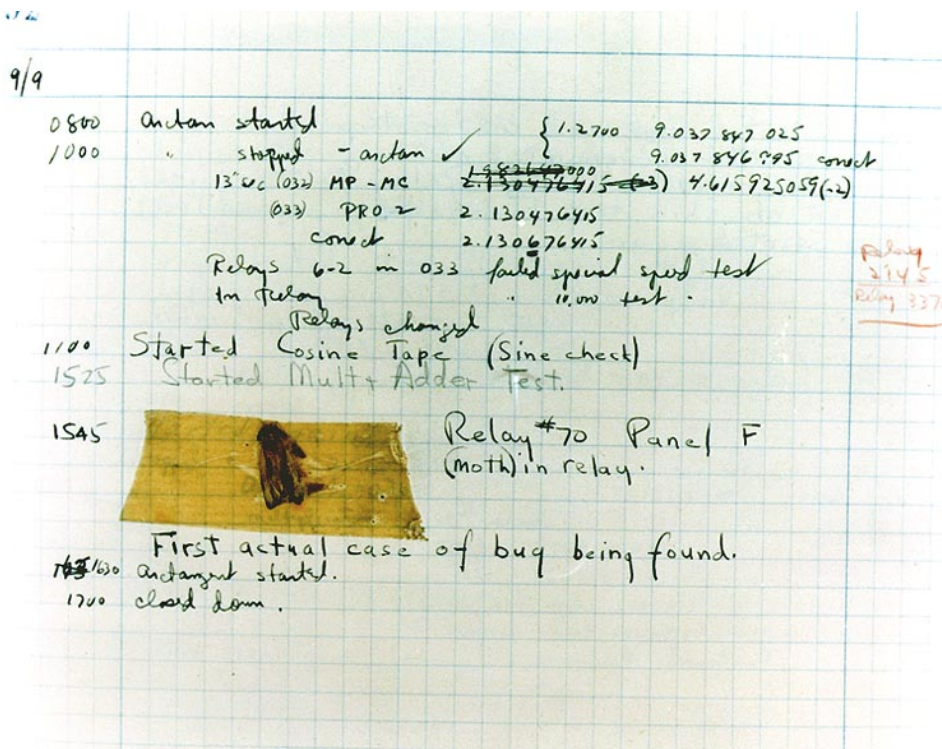 9/9
0800 antan started { 1.2700 9.037 847 025
1000 " stopped - antan ✓ { 9.037 846 995 correct
13"uc (032) MP-MC 2.130476415 (-3) 4.615925059(-2)
(033) PRO 2 2.130476415
correct 2.130676415
Relays 6-2 in 033 failed special speed test
In Relay " 10,000 test.
Relays changed
Relay
2145
Relay 337
1100 Started Cosine Tape (Sine check)
1525 Started Mult+ Adder Test.
1545 Relay #70 Panel F
(moth) in relay.
First actual case of bug being found.
1630 antangent started.
1700 closed down.